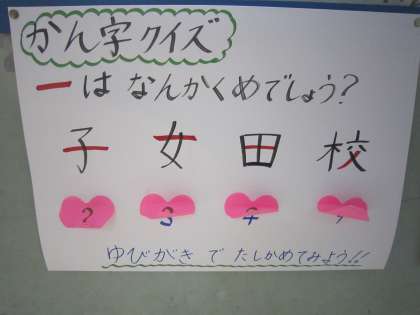 かん字クイズ
一は なんかくめでしょう?
子 女 田 校
3 4
ゆびがき で たしかめてみよう!!